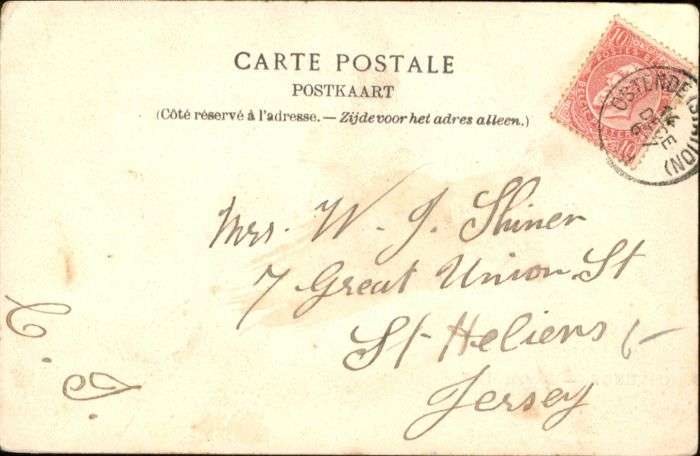 CARTE POSTALE
POSTKAART
(Côté réservé à l'adresse. — Zijde voor het adres alleen.)
10
POSTES
10
OSTENDE (STATION)
14
DECE
Mrs. W. J. Shiner
7 Great Union St
St Heliers
Jersey
C. J.